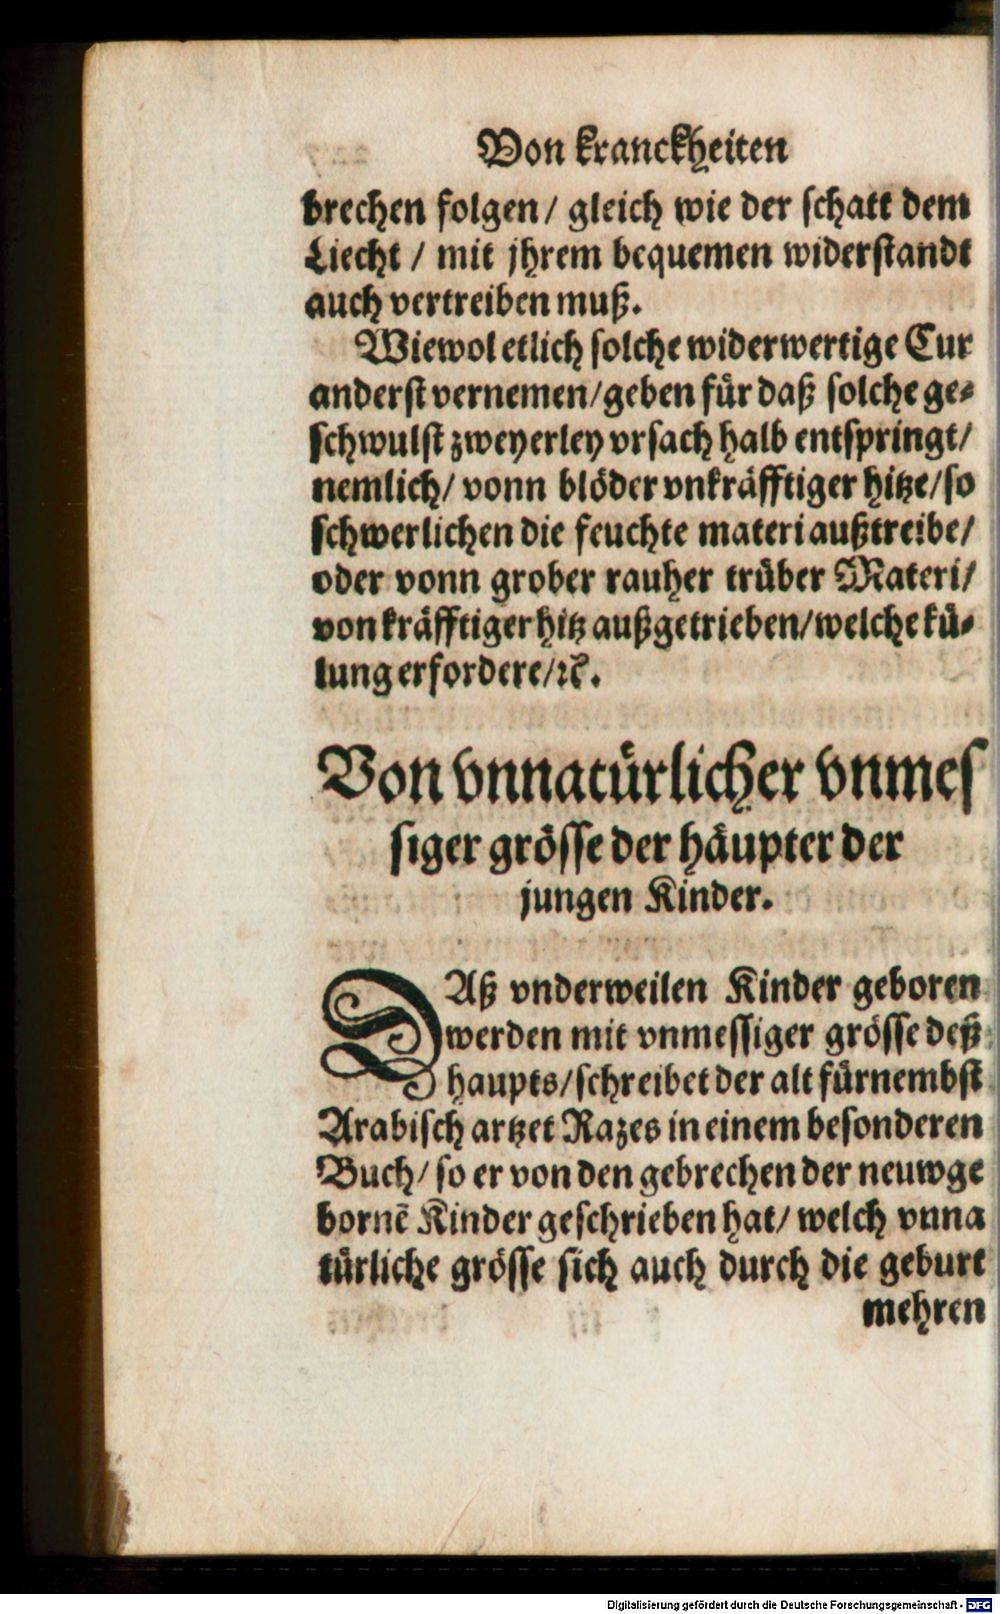 Von kranckheiten
brechen folgen/ gleich wie der schatt dem
Liecht / mit jhrem bequemen widerstandt
auch vertreiben muß.
Wiewol etlich solche widerwertige Cur
anderst vernemen/geben für daß solche ge⸗
schwulst zweyerley vrsach halb entspringt/
nemlich/ vonn blöder vnkräfftiger hitze/so
schwerlichen die feuchte materi außtreibe/
oder vonn grober rauher trüber Materi/
von kräfftiger hitz außgetrieben/welche kü⸗
lung erfordere/ꝛc.
Von vnnatürlicher vnmes
siger grösse der häupter der
jungen Kinder.
DAß vnderweilen Kinder geboren
werden mit vnmessiger grösse deß
haupts/schreibet der alt fürnembst
Arabisch artzet Razes in einem besonderen
Buch/ so er von den gebrechen der neuwge
bornē Kinder geschrieben hat/ welch vnna
türliche grösse sich auch durch die geburt
mehren
Digitalisierung gefördert durch die Deutsche Forschungsgemeinschaft - DFG